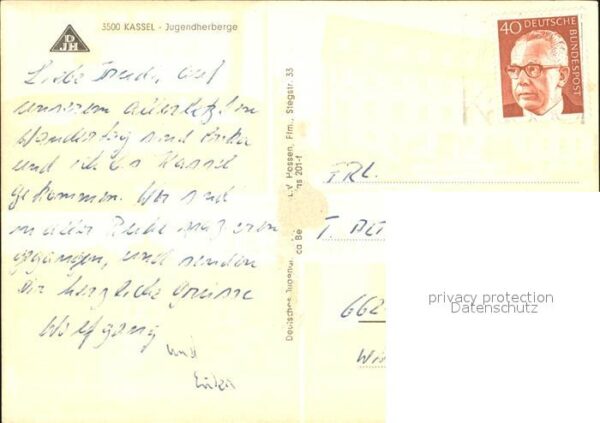 DJH
3500 KASSEL - Jugendherberge
Liebe Trudi, auf
unserem allerletzten
Wandertag sind Erika
und ich bis Kassel
gekommen. Wir sind
in aller Ruhe spazieren
gegangen, und senden
Dir herzliche Grüsse
Wolfgang
und
Erika
Deutsches Jugend
Passen, Ffm., Stegstr. 33
201-f
40 DEUTSCHE BUNDESPOST
FRL.
T.
662
privacy protection
Datenschutz